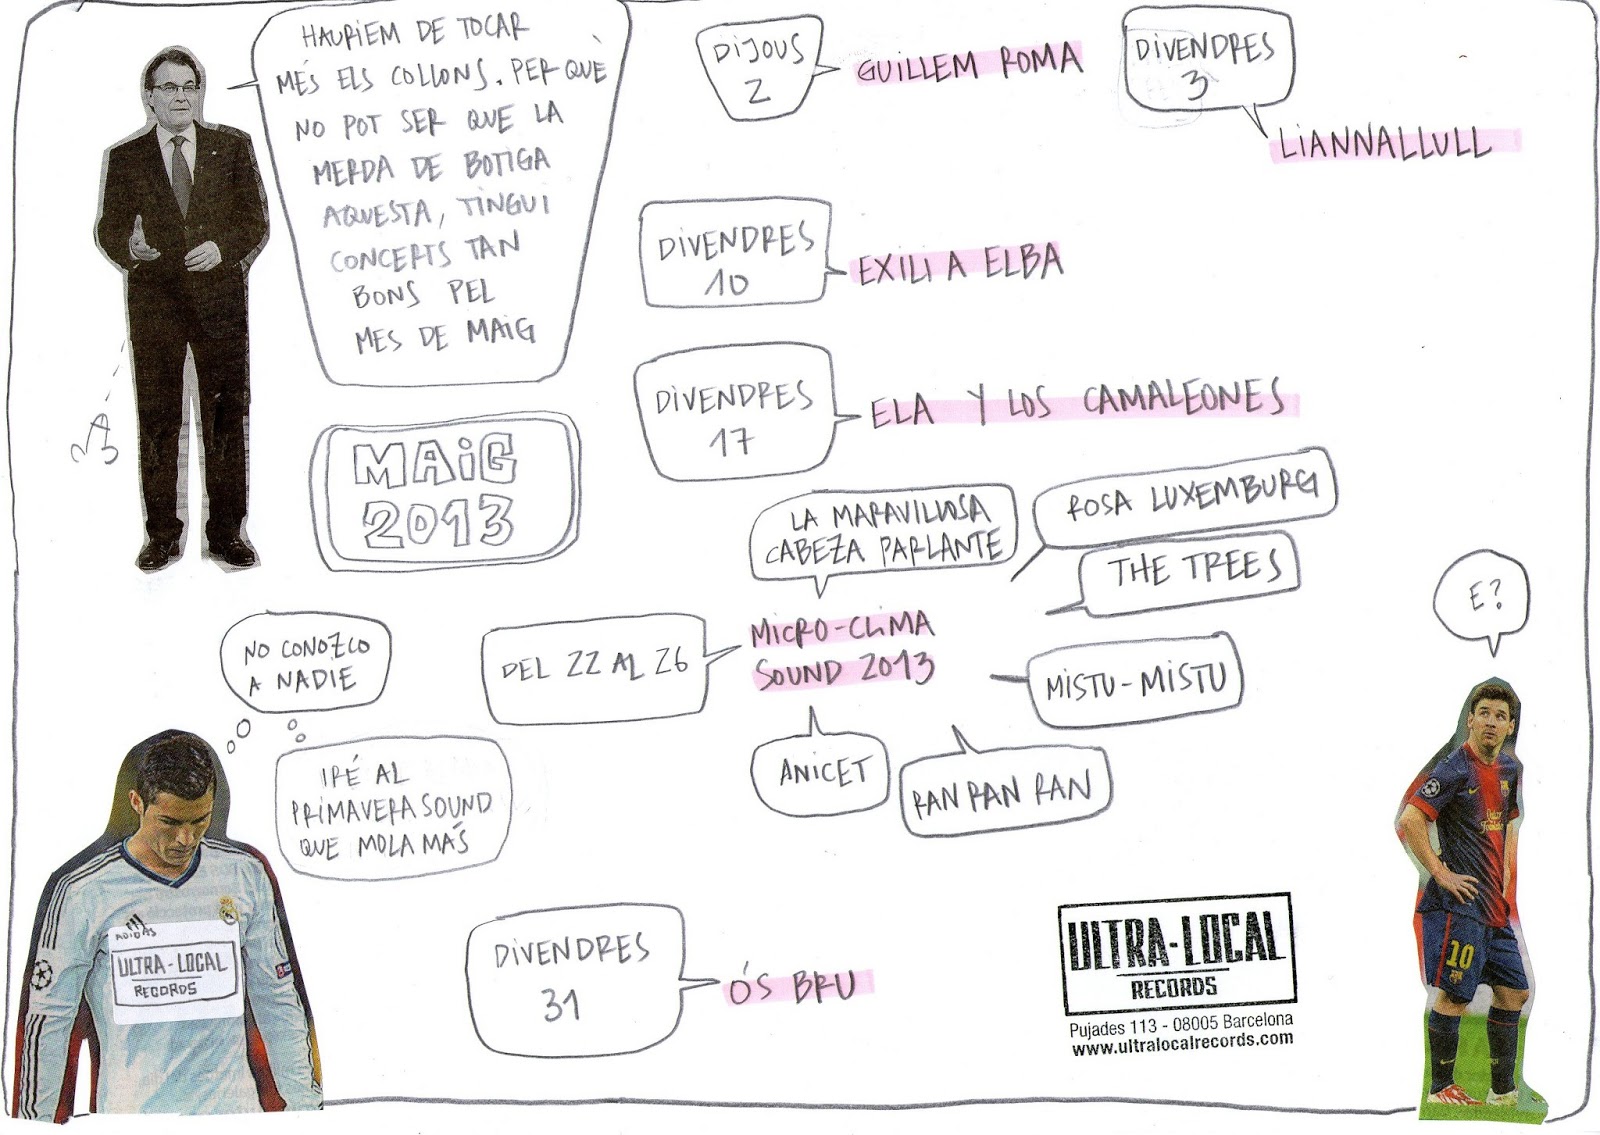 HAURIEM DE TOCAR
MÉS ELS COLLONS. PER QUÈ
NO POT SER QUE LA
MERDA DE BOTIGA
AQUESTA, TINGUI
CONCERTS TAN
BONS PEL
MES DE MAIG
MAIG
2013
DIJOUS
2
GUILLEM ROMA
DIVENDRES
3
LIANNALLULL
DIVENDRES
10
EXILI A ELBA
DIVENDRES
17
ELA Y LOS CAMALEONES
DEL 22 AL 26
MICRO-CLIMA
SOUND 2013
LA MARAVILLOSA
CABEZA PARLANTE
ROSA LUXEMBURG
THE TREES
MISTU-MISTU
RAN RAN RAN
ANICET
DIVENDRES
31
ÓS BRU
NO CONOZCO
A NADIE
IRÉ AL
PRIMAVERA SOUND
QUE MOLA MÁS
ADIDAS
ULTRA-LOCAL
RECORDS
E?
10
ULTRA-LOCAL
RECORDS
Pujades 113 - 08005 Barcelona
www.ultralocalrecords.com